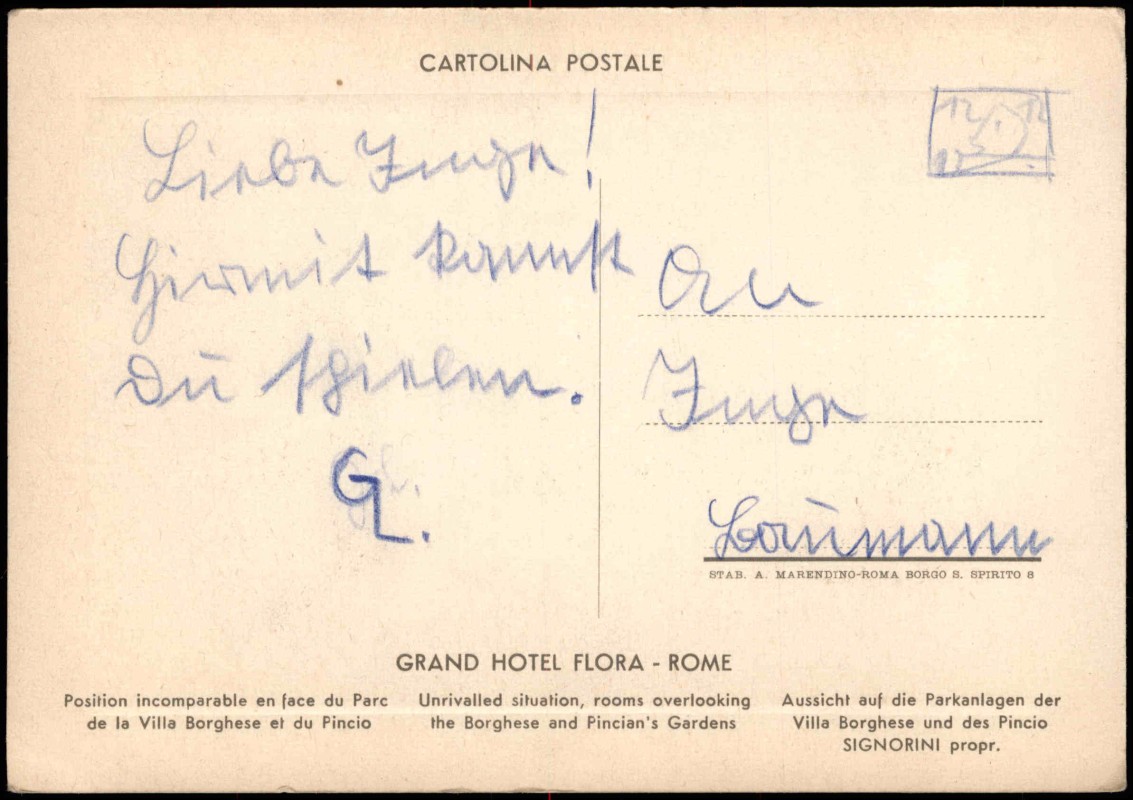 CARTOLINA POSTALE
Liebe Inge!
Hiermit kannst
Du spielen.
GL.
An
Inge
Baumann
STAB. A. MARENDINO-ROMA BORGO S. SPIRITO 8
GRAND HOTEL FLORA - ROME
Position incomparable en face du Parc
de la Villa Borghese et du Pincio
Unrivalled situation, rooms overlooking
the Borghese and Pincian's Gardens
Aussicht auf die Parkanlagen der
Villa Borghese und des Pincio
SIGNORINI propr.